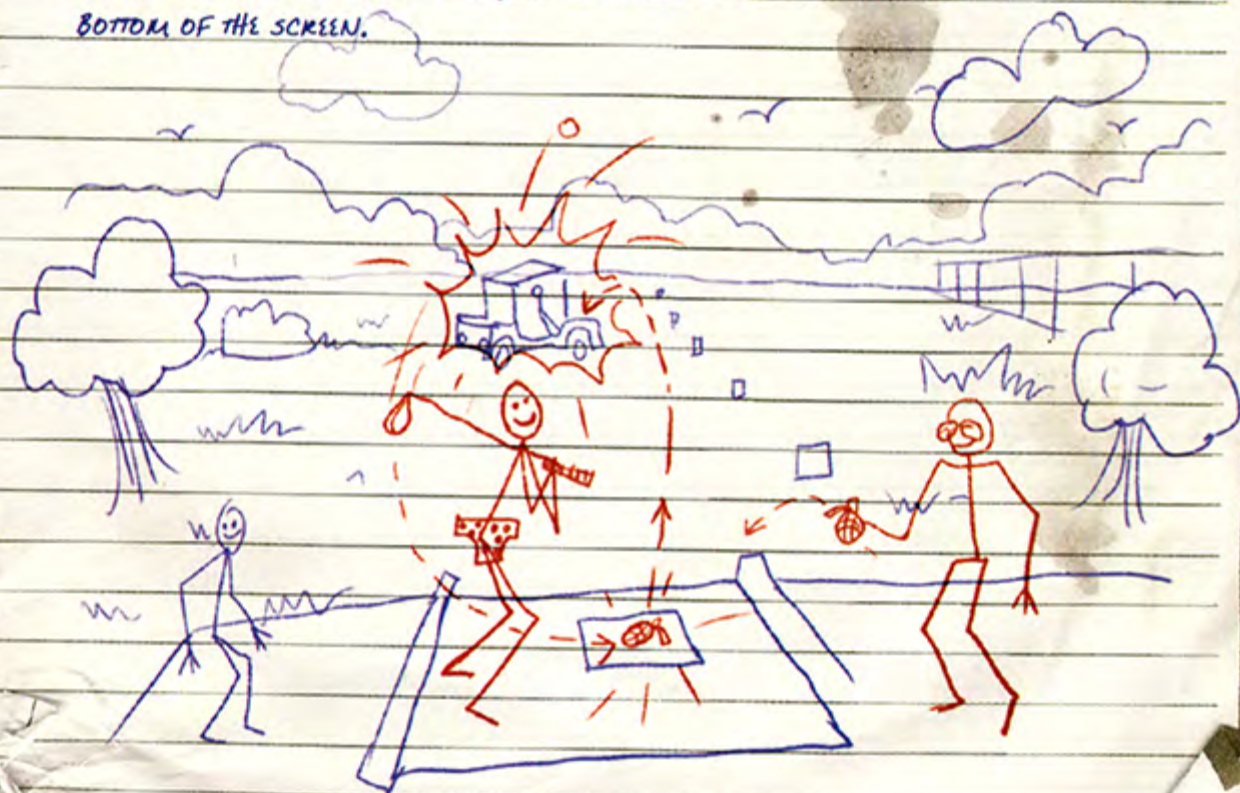 BOTTOM OF THE SCREEN.